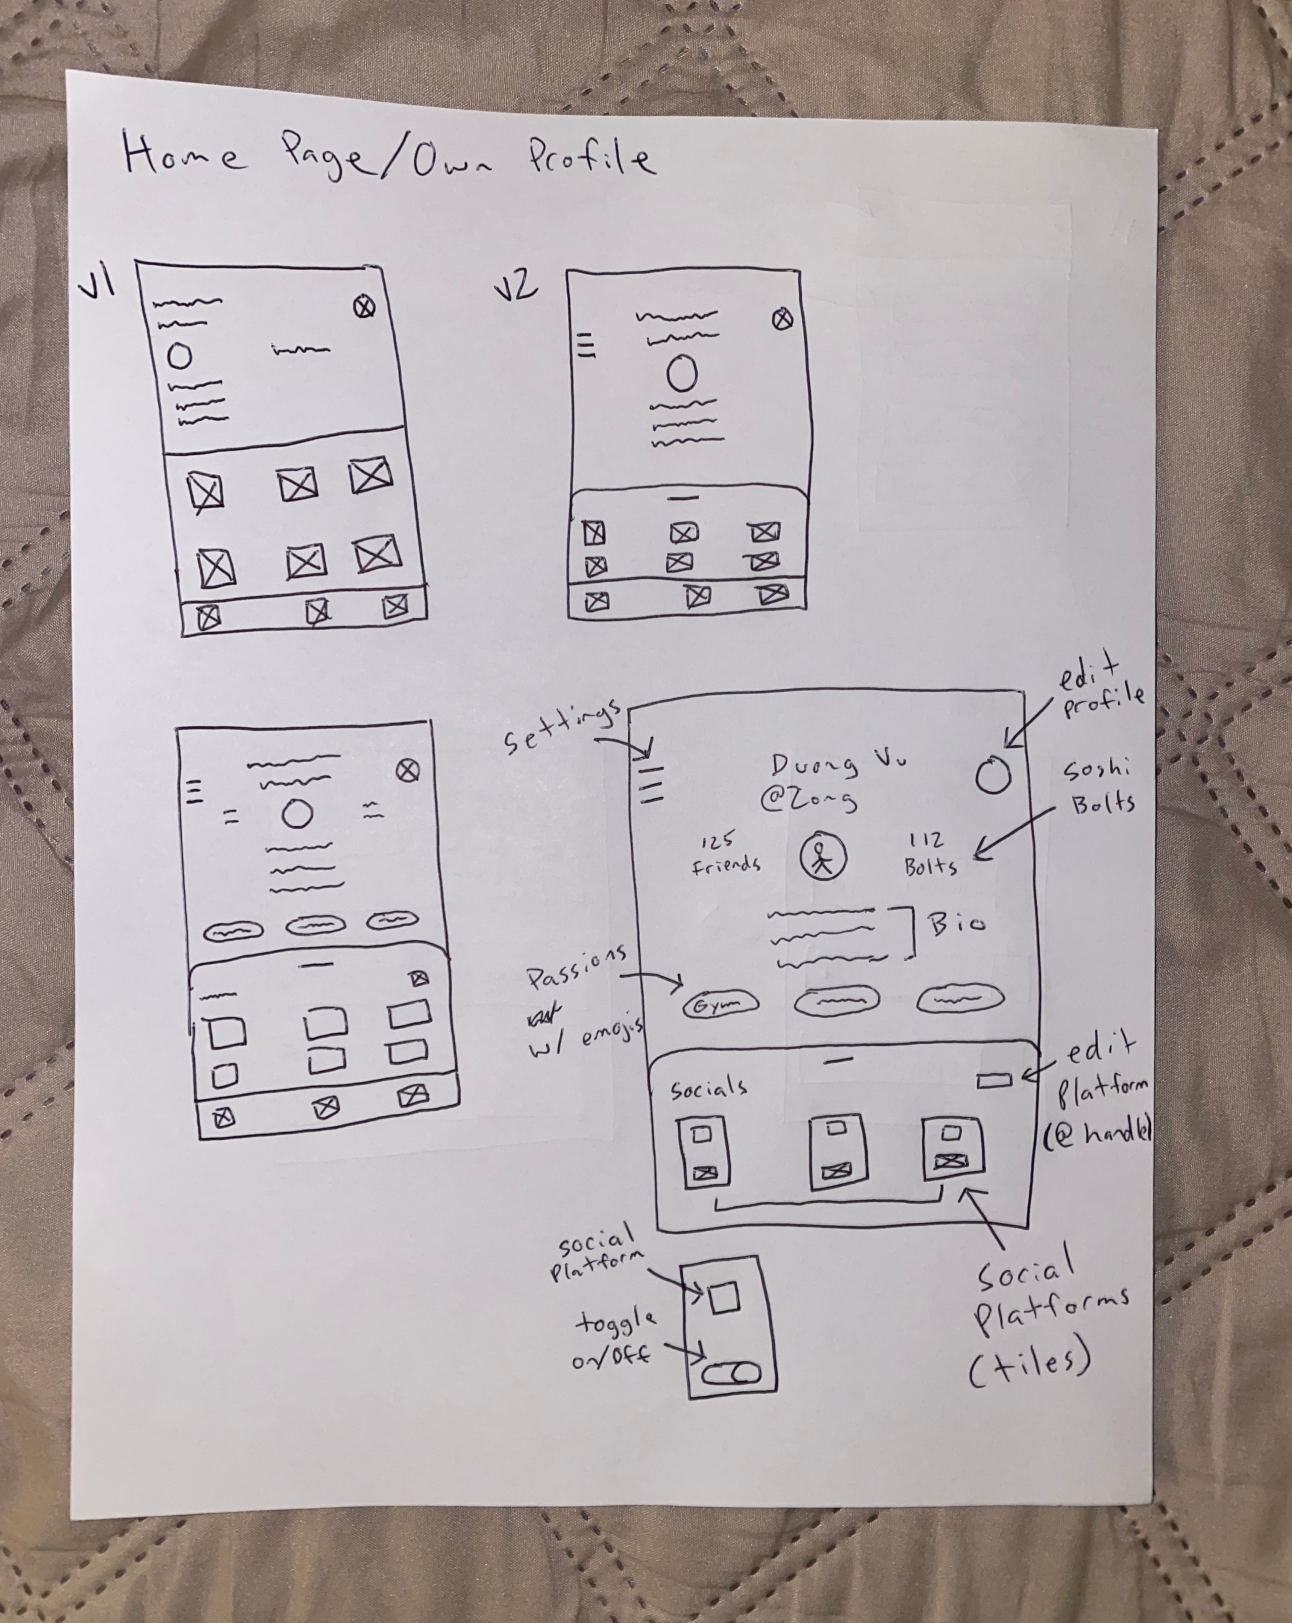 Home Page/Own Profile
v1
v2
edit
profile
settings
Duong Vu
@Zong
Soshi
Bolts
125
Friends
112
Bolts
Bio
Passions
w/ emojis
Gym
edit
Platform
(@ handle)
Socials
social
Platform
toggle
on/Off
Social
Platforms
(tiles)